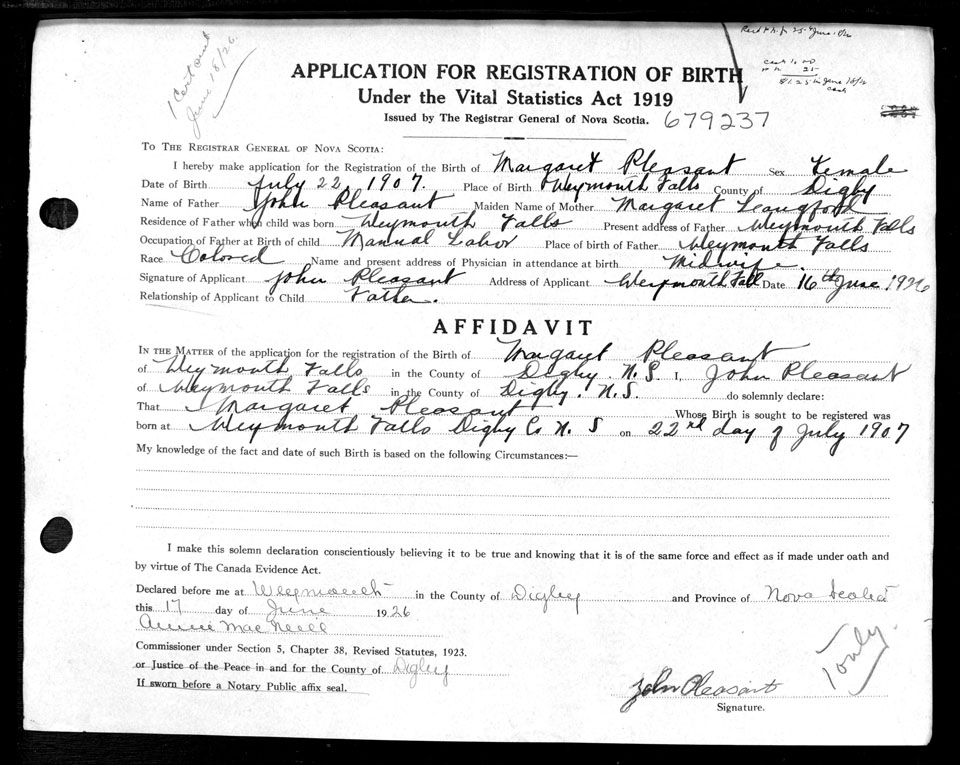 1 Cert out
June 18/26.
APPLICATION FOR REGISTRATION OF BIRTH
Under the Vital Statistics Act 1919
Issued by The Registrar General of Nova Scotia. 679237
TO THE REGISTRAR GENERAL OF NOVA SCOTIA:
I hereby make application for the Registration of the Birth of Margaret Pleasant Sex Female
Date of Birth July 22, 1907. Place of Birth Weymouth Falls County of Digby
Name of Father John Pleasant Maiden Name of Mother Margaret Langford
Residence of Father when child was born Weymouth Falls Present address of Father Weymouth Falls
Occupation of Father at Birth of child Manual Labor Place of birth of Father Weymouth Falls
Race Colored Name and present address of Physician in attendance at birth Midwife.
Signature of Applicant John Pleasant Address of Applicant Weymouth Fall Date 16th June 1926
Relationship of Applicant to Child Father.
AFFIDAVIT
IN THE MATTER of the application for the registration of the Birth of Margaret Pleasant
of Weymouth Falls in the County of Digby. N.S. I, John Pleasant
of Weymouth Falls in the County of Digby. N.S. do solemnly declare:
That Margaret Pleasant Whose Birth is sought to be registered was
born at Weymouth Falls Digby Co N. S on 22nd day of July 1907
My knowledge of the fact and date of such Birth is based on the following Circumstances:—
I make this solemn declaration conscientiously believing it to be true and knowing that it is of the same force and effect as if made under oath and
by virtue of The Canada Evidence Act.
Declared before me at Weymouth in the County of Digby and Province of Nova Scotia
this 17 day of June 1926
Annie MacNeill
Commissioner under Section 5, Chapter 38, Revised Statutes, 1923.
or Justice of the Peace in and for the County of Digby
If sworn before a Notary Public affix seal.
John Pleasant
Signature.
1 only.